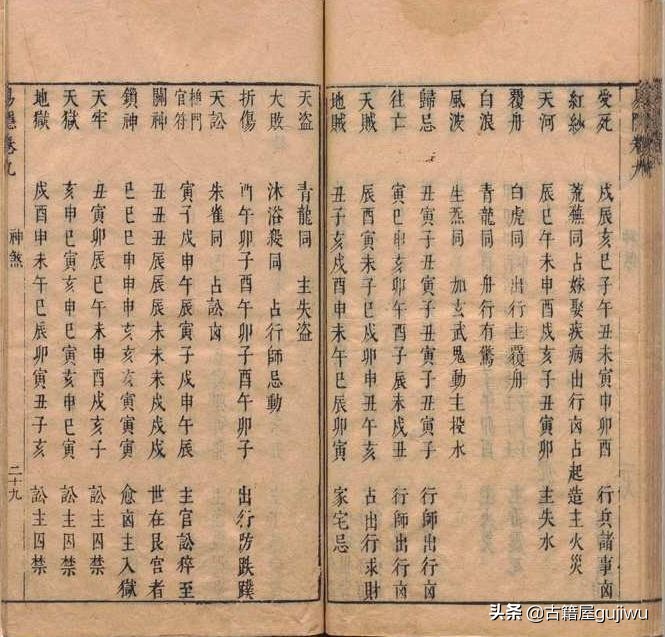 受死 戌辰亥巳子午丑未寅申卯酉 行兵諸事凶
紅紗 荒蕪同占嫁娶疾病出行凶占起造主火災
天河 辰巳午未申酉戌亥子丑寅卯 主失水
覆舟 白虎同 出行主覆舟
白浪 青龍同 舟行有驚
風波 生炁同 加玄武鬼動主投水
歸忌 丑寅子丑寅子丑寅子丑寅子 行師出行凶
往亡 寅巳申亥卯午酉子辰未戌丑 行師出行凶
天賊 辰酉寅未子巳戌卯申丑午亥 占出行求財
地賊 丑子亥戌酉申未午巳辰卯寅 家宅忌
天盜 青龍同 主失盜
大敗 沐浴殺同 占行師忌動
折傷 酉午卯子酉午卯子酉午卯子 出行防跌蹼
天訟 朱雀同 占訟凶
官符 寅子戌申午辰寅子戌申午辰 主官訟瘁至
關神 丑丑丑辰辰辰未未未戌戌戌 世在艮宮者
鎖神 巳巳巳申申申亥亥亥寅寅寅 愈凶主入獄
天牢 丑寅卯辰巳午未申酉戌亥子 訟主囚禁
天獄 亥申巳寅亥申巳寅亥申巳寅 訟主囚禁
地獄 戌酉申未午巳辰卯寅丑子亥 訟主囚禁
易隱卷九 神煞 二十九
头条 @古籍屋gujiwu